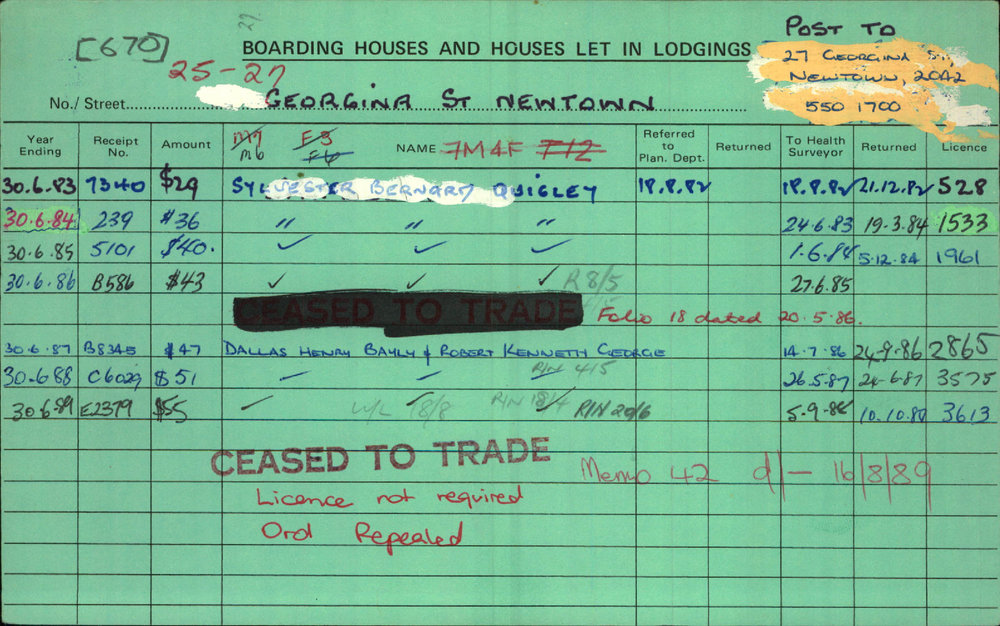 27
[670]
POST TO
BOARDING HOUSES AND HOUSES LET IN LODGINGS
27 GEORGINA ST,
NEWTOWN, 2042
550 1700
25-27
No./Street GEORGINA ST NEWTOWN
Year Ending Receipt No. Amount M7 M6 F3 F4 NAME 7M4F 7/12 Referred to Plan. Dept. Returned To Health Surveyor Returned Licence
30.6.83 7340 $29 SYLVESTER BERNARD QUIGLEY 18.8.82 18.8.82 21.12.82 528
30.6.84 239 $36 " " " 24.6.83 19.3.84 1533
30.6.85 5101 $40. ✓ ✓ ✓ 1.6.84 5.12.84 1961
30.6.86 B586 $43 ✓ ✓ ✓ R 8/5 27.6.85
CEASED TO TRADE Folio 18 dated 20.5.86.
30.6.87 B8345 $47 DALLAS HENRY BAYLY & ROBERT KENNETH GEORGE 14.7.86 24.9.86 2865
30.6.88 C6029 $51 R/N 4/5 26.5.87 24.6.87 3575
30.6.89 E2379 $55 ✓ W/L 18/8 R/N 18/4 ✓ R/N 20/6 5.9.88 10.10.88 3613
CEASED TO TRADE Memo 42 d/- 16/8/89
Licence not required
Ord Repealed